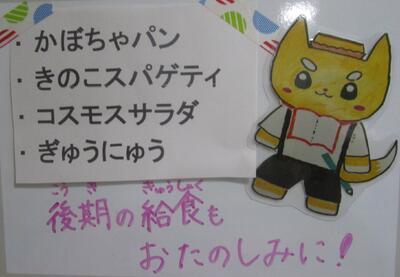 ・かぼちゃパン
・きのこスパゲティ
・コスモスサラダ
・ぎゅうにゅう
こうき ぎゅうしょく
後期の給食も
おたのしみに！